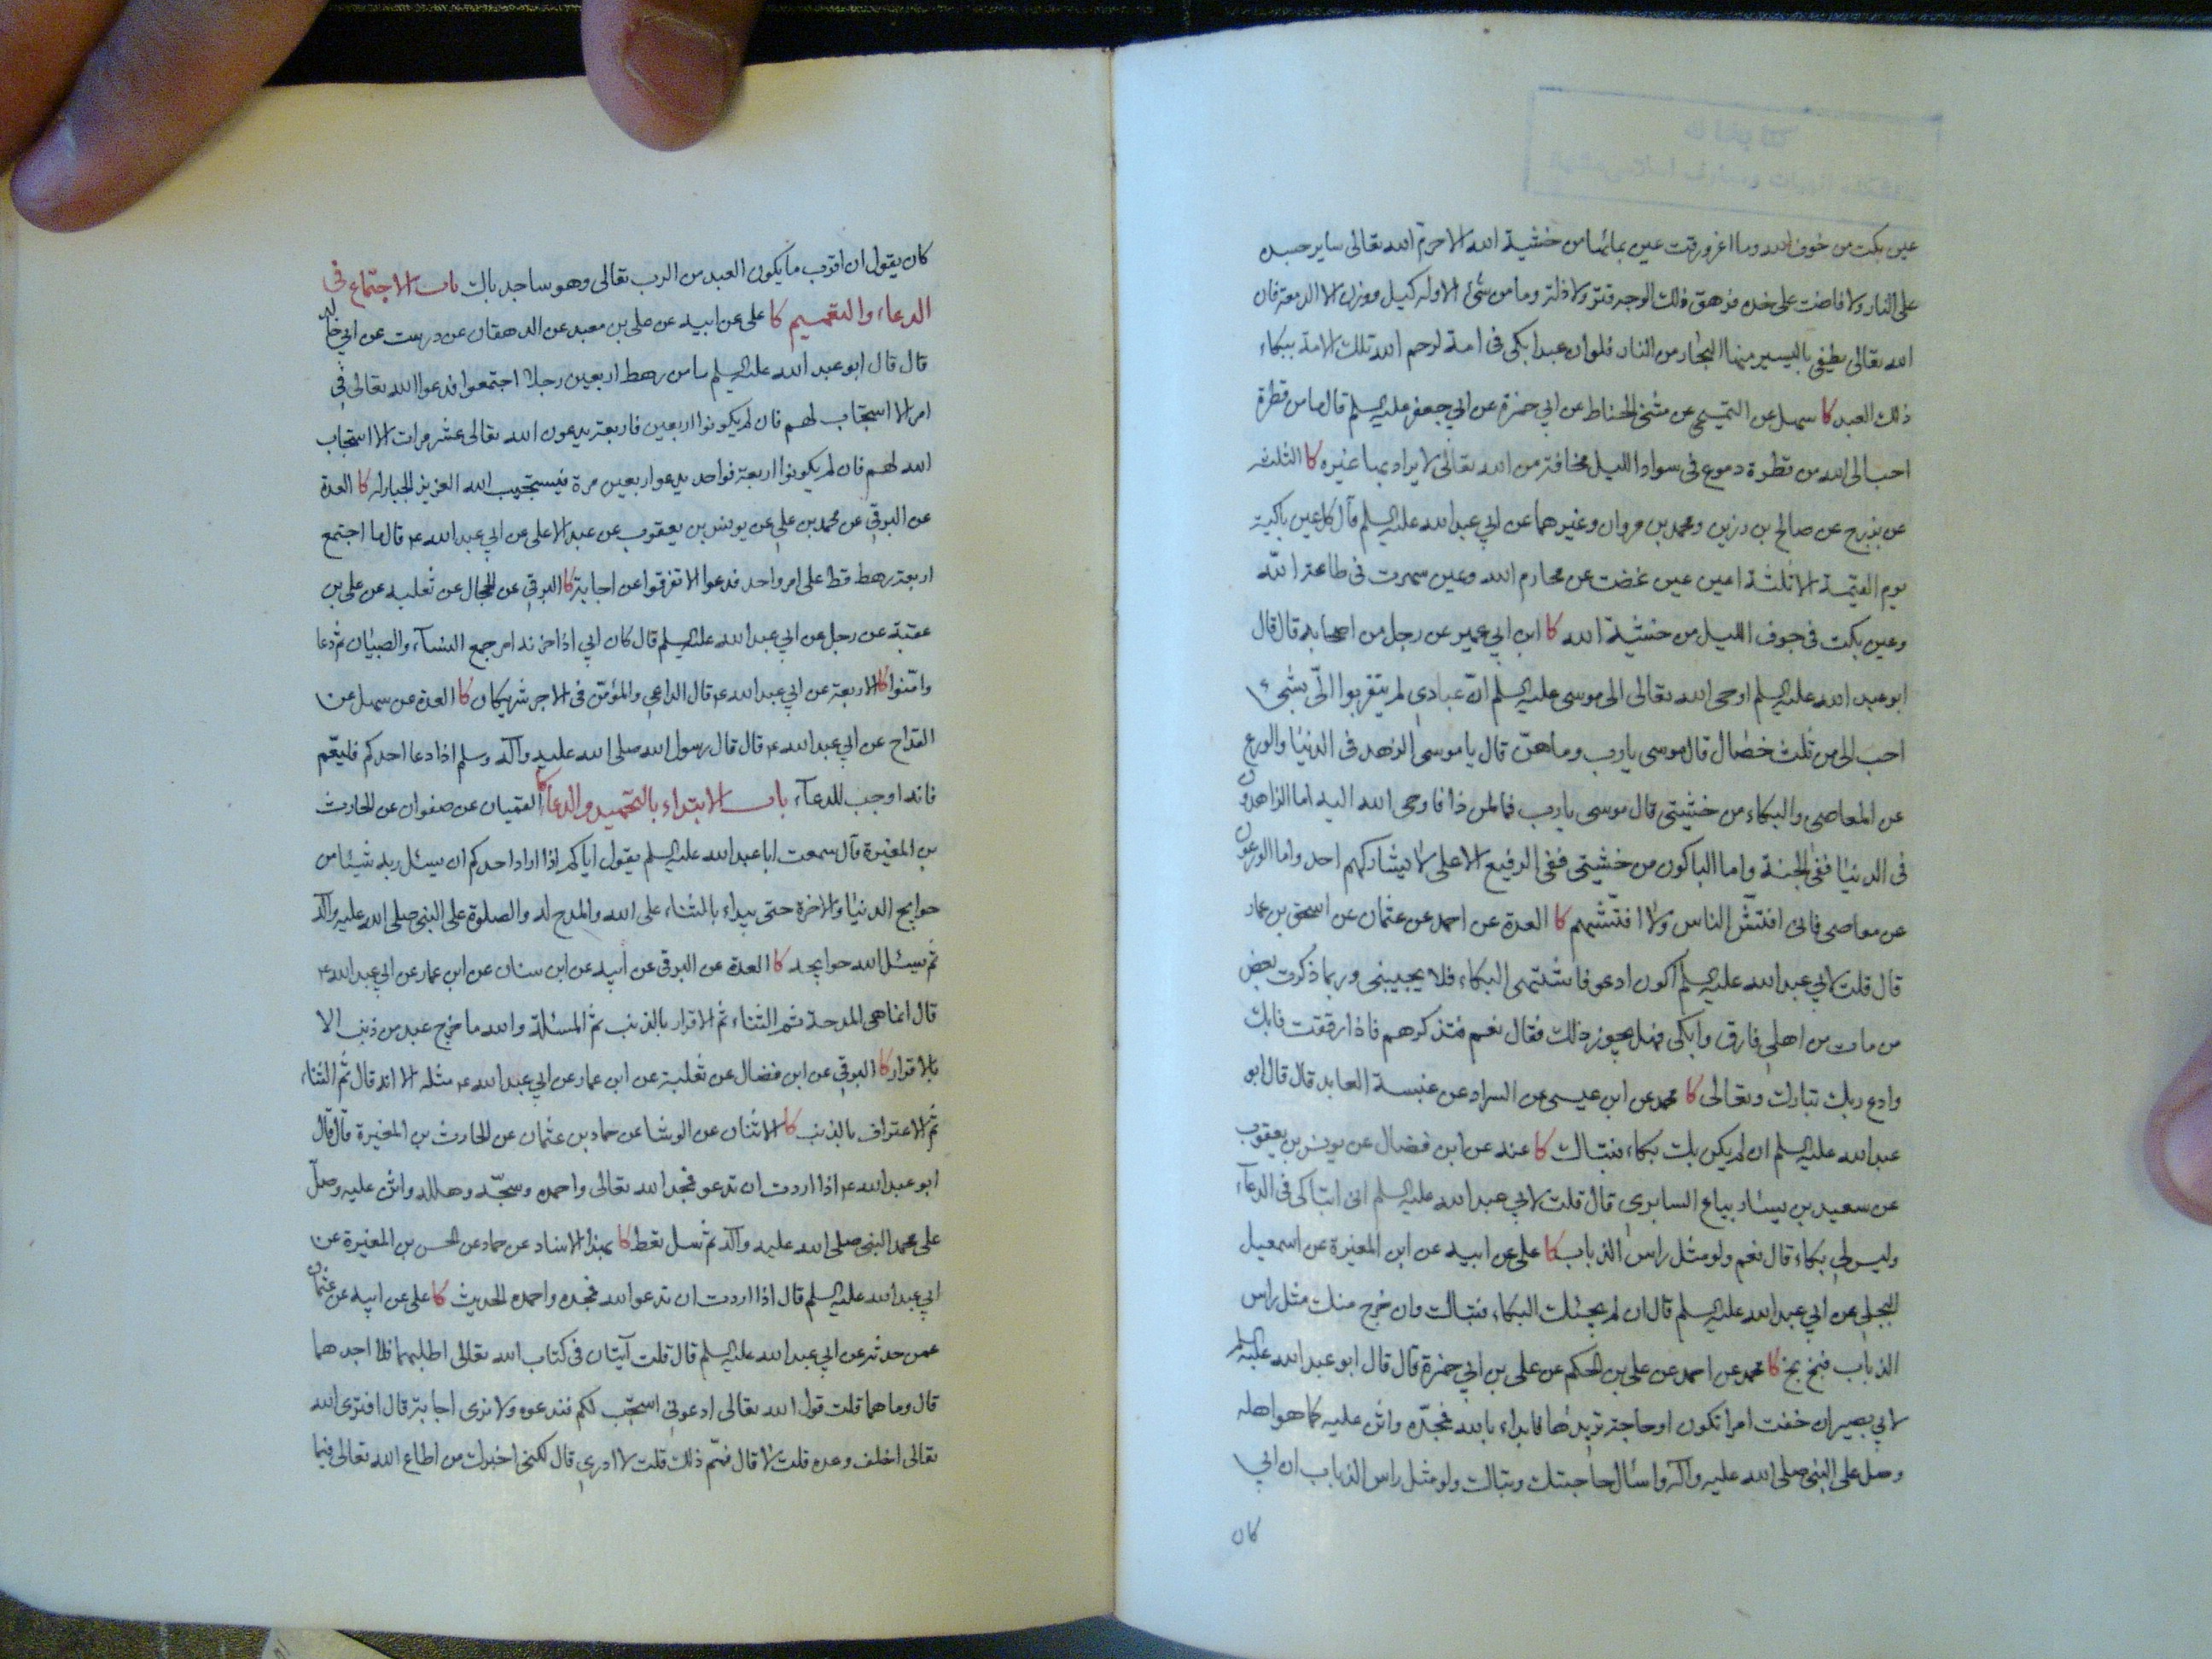 عين بكت من خوف الله وما اغرورقت عين بمائها من خشية الله الا حرم الله تعالى ساير جسده
على النار ولا فاضت على خده فرهق ذلك الوجه قتر ولا ذلة وما من شئ الا وله كيل ووزن الا الدمعة فان
الله تعالى يطفى باليسير منها البحار من النار فلو ان عبدا بكى فى امة لرحم الله تلك الامة ببكاء
ذلك العبد كا سهل عن التميمى عن مثنى الحناط عن ابي حمزة عن ابي جعفر عليه السلم قال ما من قطرة
احب الى الله من قطرة دموع فى سواد الليل مخافة من الله تعالى لا يراد بها غيره كا الثلثة
عن بزرج عن صالح بن رزين ومحمد بن مروان وغيرهما عن ابي عبد الله عليه السلم قال كل عين باكية
يوم القيمة الا ثلثة اعين عين غضت عن محارم الله وعين سهرت فى طاعة الله
وعين بكت فى جوف الليل من خشية الله كا ابن ابي عمير عن رجل من اصحابه قال قال
ابو عبد الله عليه السلم اوحى الله تعالى الى موسى عليه السلم انّ عبادي لم يتقربوا الىّ بشئ
احب الى من ثلث خصال قال موسى يارب وما هنّ قال يا موسى الزهد فى الدنيا والورع
عن المعاصى والبكاء من خشيتى قال موسى يارب فما لمن ذا فاوحى الله اليه اما الزاهدون
فى الدنيا ففى الجنة واما الباكون من خشيتى ففى الرفيع الاعلى لا يشاركهم احد واما الورعون
عن معاصى فانى افتّش الناس ولا افتّشهم كا العدة عن احمد عن عثمان عن اسحق بن عمار
قال قلت لابي عبد الله عليه السلم اكون ادعو فاشتهى البكاء فلا يجيبنى وربما ذكرت بعض
من مات من اهلى فارق وابكى فهل يجوز ذلك فقال نعم فتذكرهم فاذا رققت فابك
وادع ربك تبارك وتعالى كا محمد عن ابن عيسى عن السراد عن عنبسة العابد قال قال ابو
عبد الله عليه السلم ان لم يكن بك بكاء فتباك كا عنه عن ابن فضال عن يونس بن يعقوب
عن سعيد بن يسار بياع السابري قال قلت لابي عبد الله عليه السلم انى اتباكى فى الدعآء
وليس لي بكاء قال نعم ولو مثل راس الذباب كا على عن ابيه عن ابن المغيرة عن اسمعيل
البجلي عن ابي عبد الله عليه السلم قال ان لم يجئك البكاء فتباك وان خرج منك مثل راس
الذباب فبخ بخ كا محمد عن احمد عن على بن الحكم عن على بن ابي حمزة قال قال ابو عبد الله عليه السلم
لابي بصير ان خفت امرا تكون او حاجة تريدها فابداء بالله فمجّده واثن عليه كما هو اهله
وصل على النبى صلى الله عليه وآله واسأل حاجتك وتباك ولو مثل راس الذباب ان ابي
كان
كان يقول ان اقرب ما يكون العبد من الرب تعالى وهو ساجد باك باب الاجتماع فى
الدعاء والتعميم كا على عن ابيه عن على بن معبد عن الدهقان عن درست عن ابي خالد
قال قال ابو عبد الله عليه السلم ما من رهط اربعين رجلا اجتمعوا فدعوا الله تعالى فى
امر الا استجاب لهم فان لم يكونوا اربعين فاربعة يدعون الله تعالى عشر مرات الا استجاب
الله لهم فان لم يكونوا اربعة فواحد يدعو اربعين مرة فيستجيب الله العزيز الجبار له كا العدة
عن البرقي عن محمد بن علي عن يونس بن يعقوب عن عبد الاعلى عن ابي عبد الله ع قال ما اجتمع
اربعة رهط قط على امر واحد فدعوا الا تفرقوا عن اجابة كا البرقي عن الحجال عن ثعلبه عن على بن
عقبة عن رجل عن ابي عبد الله عليه السلم قال كان ابي اذا حزنه امر جمع النسآء والصبيان ثم دعا
وامّنوا كا الاربعة عن ابي عبد الله ع قال الداعي والمؤمّن فى الاجر شريكان كا العدة عن سهل عن
القداح عن ابي عبد الله ع قال قال رسول الله صلى الله عليه وآله وسلم اذا دعا احدكم فليعّم
فانه اوجب للدعآء باب الابتداء بالتحميد والدعآء كا القميان عن صفوان عن الحارث
بن المغيرة قال سمعت ابا عبد الله عليه السلم يقول اياكم اذا اراد احدكم ان يسئل ربه شيئا من
حوايج الدنيا والاخرة حتى يبداء بالثناء على الله والمدح له والصلوة على النبى صلى الله عليه وآله
ثم يسئل الله حوايجه كا العدة عن البرقى عن أبيه عن ابن سنان عن ابن عمار عن ابي عبد الله ع
قال انما هى المدحة ثم الثناء ثم الاقرار بالذنب ثم المسئلة والله ما خرج عبد من ذنب الا
بالاقرار كا البرقي عن ابن فضال عن ثعلبة عن ابن عمار عن ابي عبد الله ع مثله الا انه قال ثم الثناء
ثم الاعتراف بالذنب كا الاثنان عن الوشا عن حماد بن عثمان عن الحارث بن المغيرة قال قال
ابو عبد الله ع اذا اردت ان تدعو فمجد الله تعالى واحمده وسبّحه وهلله واثن عليه وصلّ
على محمد النبى صلى الله عليه وآله ثم سل تعط كا بهذا الاسناد عن حماد عن الحسن بن المغيرة عن
ابي عبد الله عليه السلم قال اذا اردت ان تدعو الله فمجده واحمده الحديث كا على عن ابيه عن عثمان
عمن حدثه عن ابي عبد الله عليه السلم قال قلت آيتان فى كتاب الله تعالى اطلبهما فلا اجدهما
قال وما هما قلت قول الله تعالى ادعونى استجب لكم فندعوه ولا نرى اجابة قال افترى الله
تعالى اخلف وعده قلت لا قال فممّ ذلك قلت لا ادري قال لكنى اخبرك من اطاع الله تعالى فيما